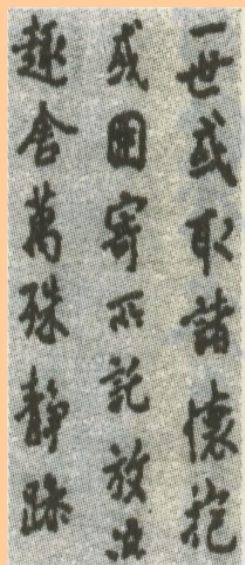 一世或取諸懷抱
或因寄所託放
趣舍萬殊静躁